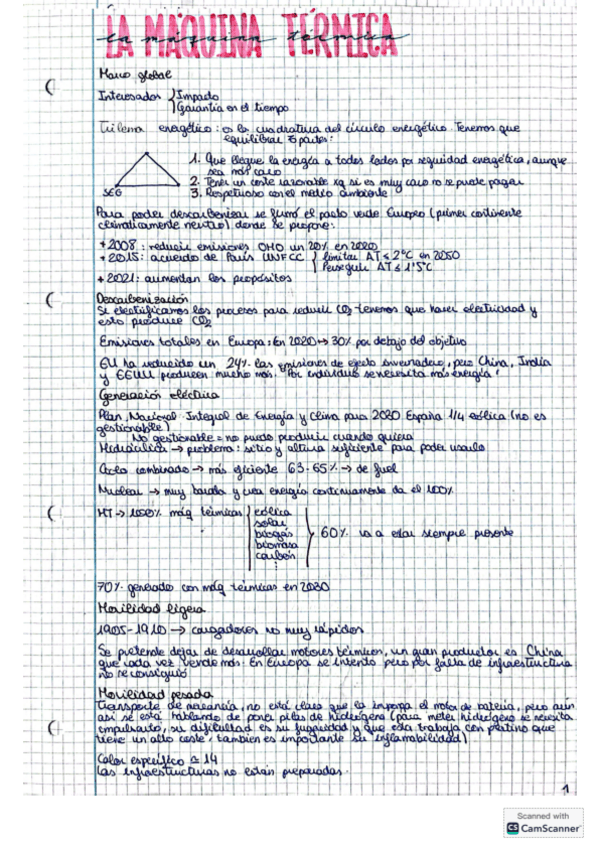 LA MÁQUINA TÉRMICA
la máquina térmica
Marco global
Interesados
Impacto
Garantía en el tiempo
Trilema energético: o la cuadratura del círculo energético. Tenemos que
equilibrar 3 partes:
1. Que llegue la energía a todos lados por seguridad energética, aunque
sea más caro
2. Tener un coste razonable xq si es muy caro no se puede pagar
SEG
3. Respetuoso con el medio ambiente
Para poder descarbonizar se firmó el pacto verde Europeo (primer continente
climáticamente neutro) donde se propone:
+ 2008: reducir emisiones un 20% en 2020
+ 2015: acuerdo de París UNFCC
limitar ΔT ≤ 2°C en 2050
Perseguir ΔT ≤ 1'5°C
+ 2021: aumentan los propósitos
Descarbonización
Si electrificamos los procesos para reducir CO2 tenemos que hacer electricidad y
esto produce CO2
Emisiones totales en Europa: En 2020 → 30% por debajo del objetivo
EU ha reducido un 24% las emisiones de efecto invernadero, pero China, India
y EEUU producen mucho más. Por individuo se necesita más energía!
Generación eléctrica
Plan Nacional Integral de Energía y Clima para 2020 España 1/4 eólica (no es
gestionable)
No gestionable = no puedo producir cuando quiera
Hidráulica → problema: sitio y altura suficiente para poder usarlo
Ciclo combinado → más eficiente 63-65% → de fuel
Nuclear → muy barata y una energía continuamente da el 100%
MT → máq térmicas
eólica
solar
biogás
biomasa
carbón
⋮
60% va a estar siempre presente
70% generados con máq térmicas en 2030
Movilidad ligera
1905-1910 → cargadores no muy rápidos
Se pretende dejar de desarrollar motores térmicos, un gran productor es China
que cada vez vende más. En Europa se intentó pero por falta de infraestructura
no se consiguió
Movilidad pesada
Transporte de mercancía, no está claro que la imponga el motor de batería, pero aún
así se está hablando de poner pilas de hidrógeno (para meter hidrógeno se necesita
empujarlo, su dificultad es su fugacidad y que esta trabaja con platino que
tiene un alto coste, también es importante su inflamabilidad)
Calor específico ≃ 14
Las infraestructuras no están preparadas.
1
Scanned with
CS CamScanner